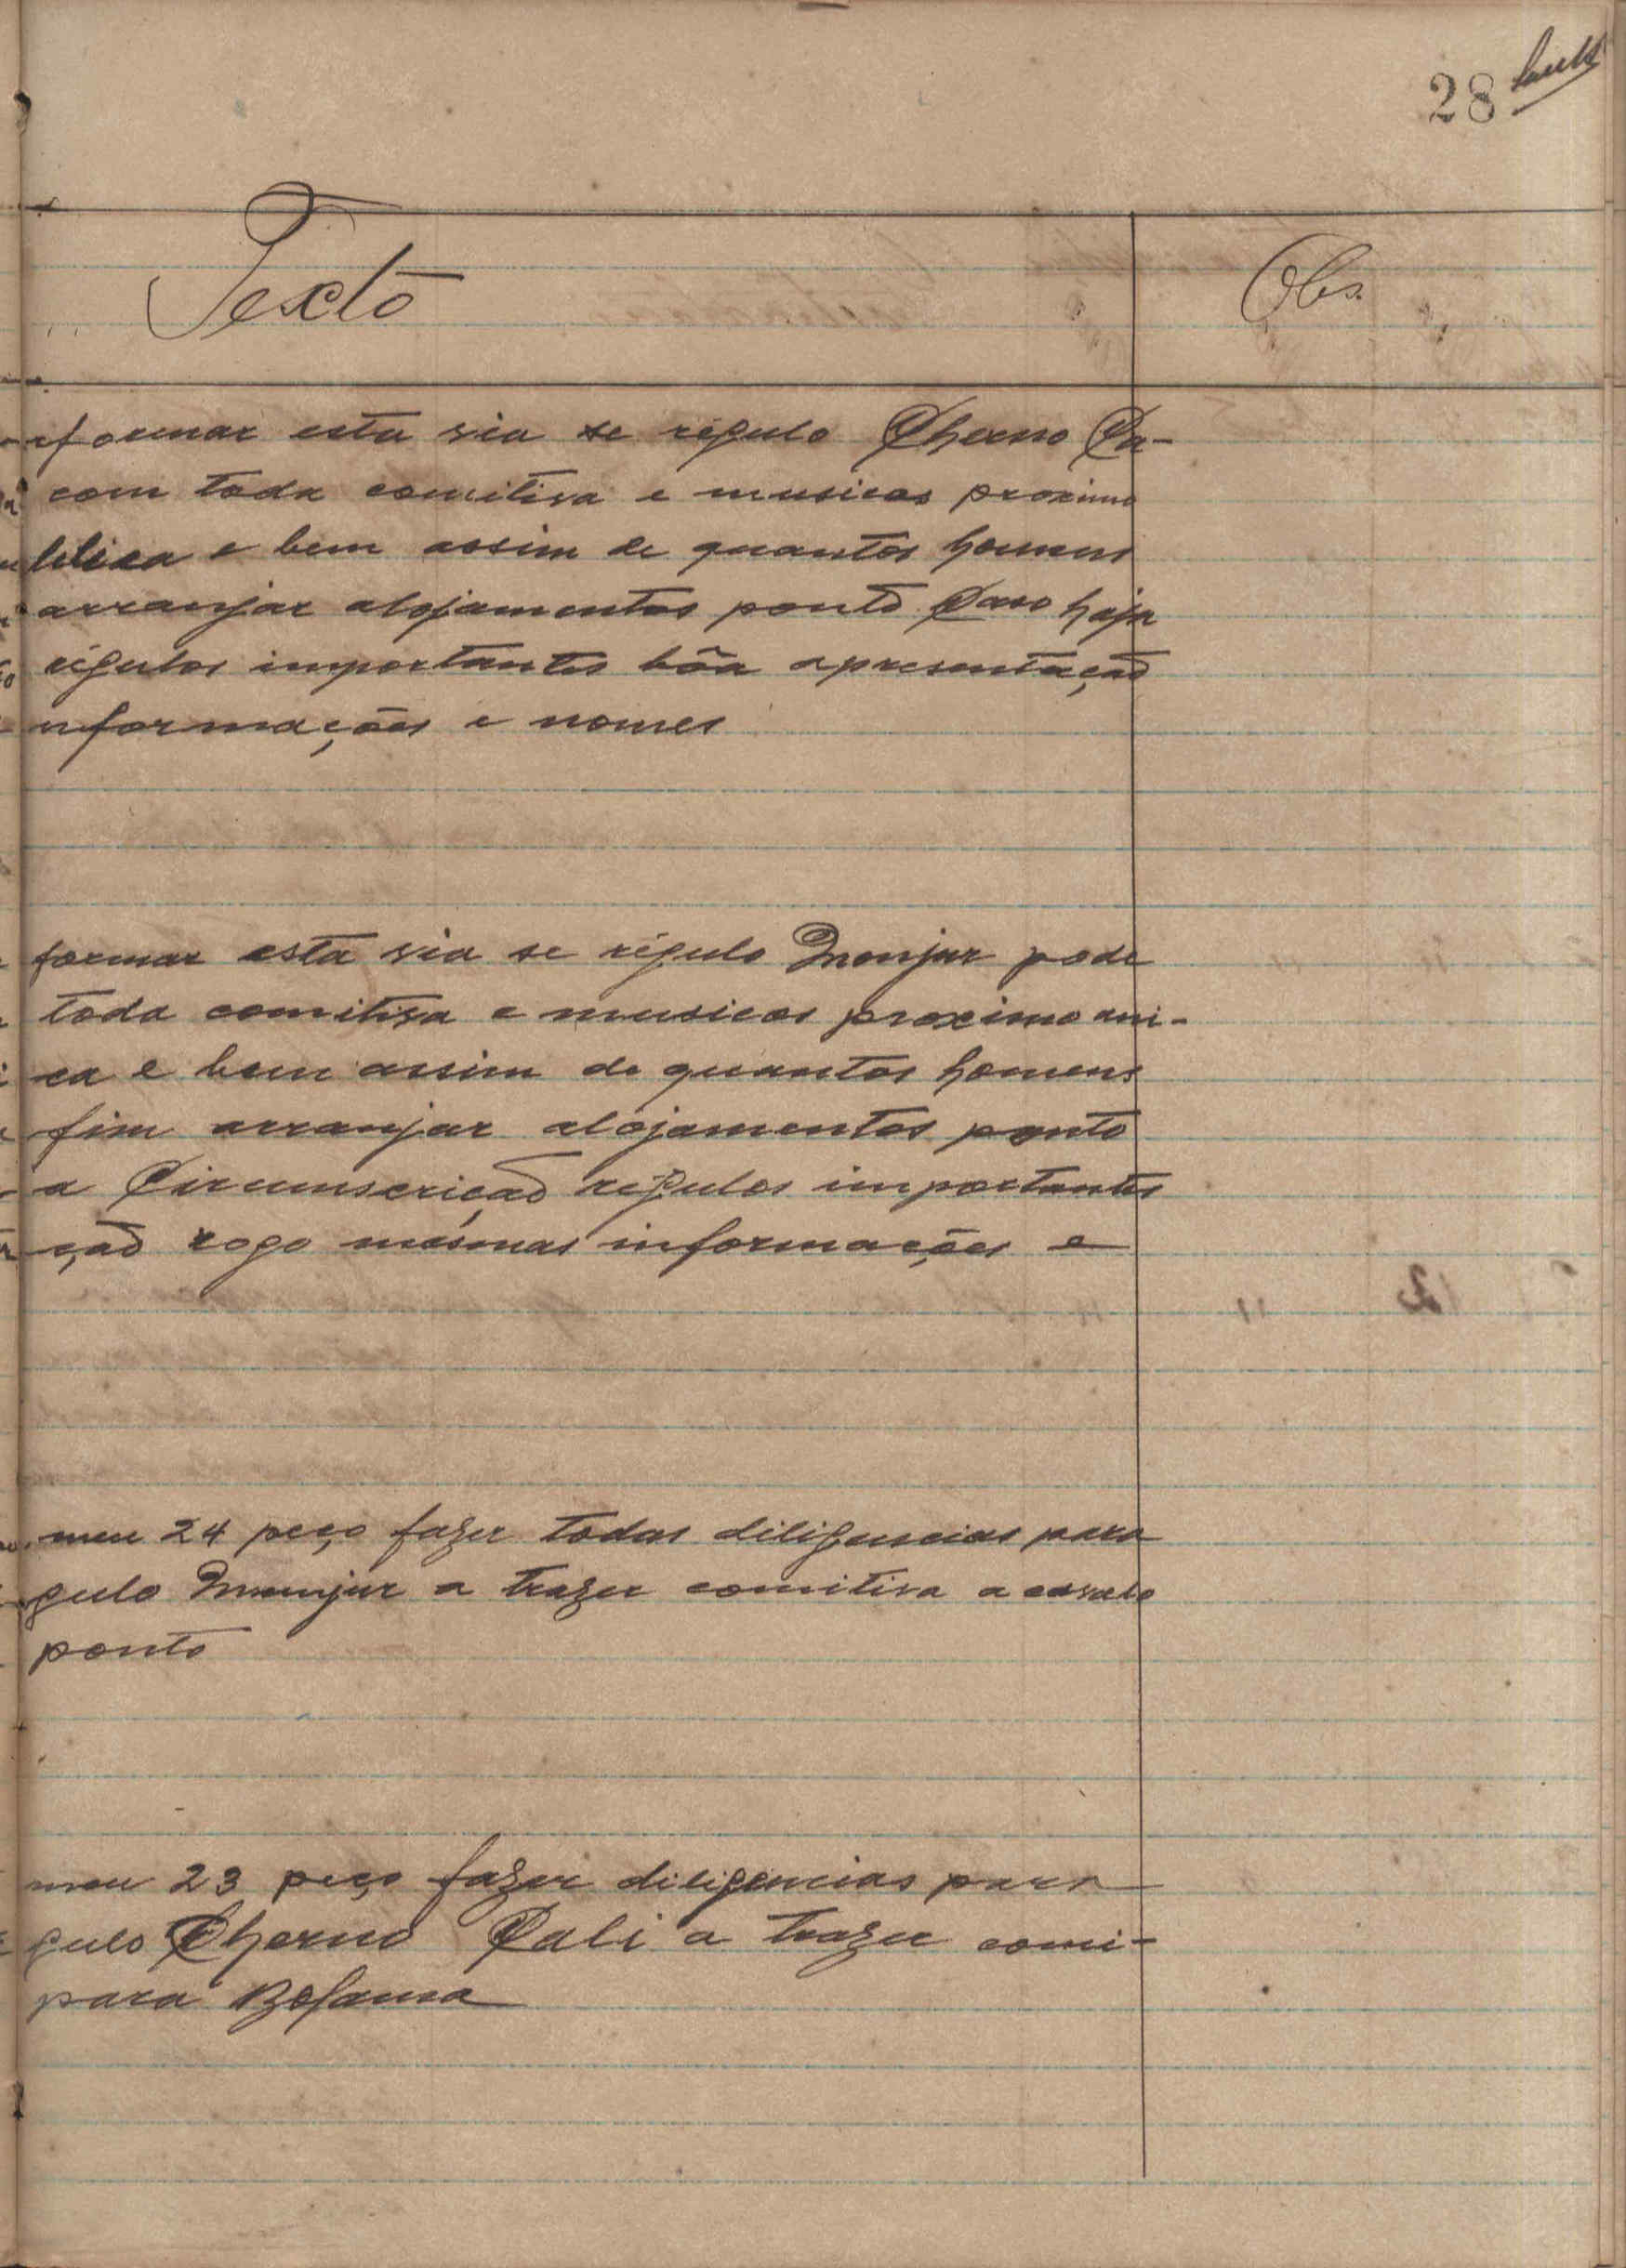 28
Texto
Obs.
nformar esta via se régulo Cherno Ca-
com toda comitiva e musicos proximo
blica e bem assim de quantos homens
arranjar alojamentos ponto Caso haja
régulos importantes bôa apresentação
nformações e nomes
formar esta via se régulo Monjur pode
toda comitiva e musicos proximo ani-
ca e bem assim de quantos homens
fim arranjar alojamentos ponto
a Circunscrição régulos importantes
ção rogo mesmas informações e
meu 24 peço fazer todas diligencias para
gulo Monjur a trazer comitiva a cavalo
ponto
meu 23 peço fazer diligencias para
gulo Cherno Cali a trazer comi-
para Bolama